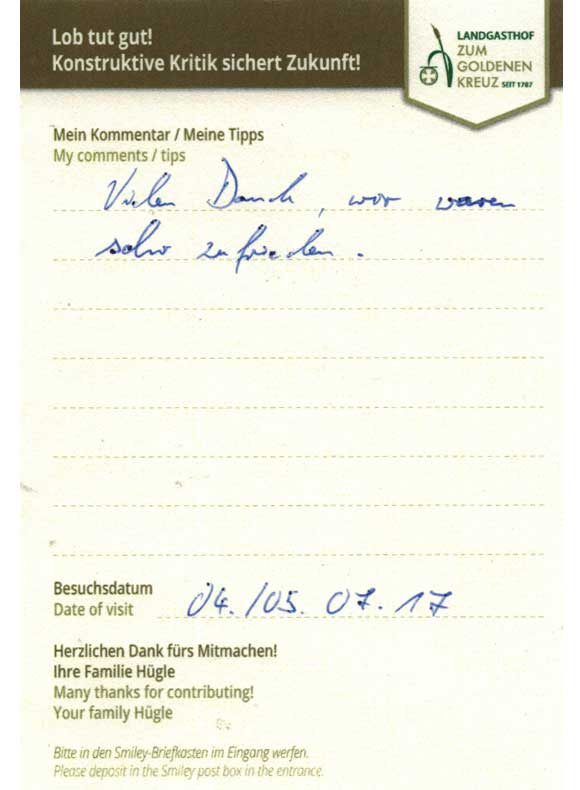 Lob tut gut!
Konstruktive Kritik sichert Zukunft!
LANDGASTHOF
ZUM
GOLDENEN
KREUZ SEIT 1787
Mein Kommentar / Meine Tipps
My comments / tips
Vielen Dank, wir waren
sehr zufrieden.
Besuchsdatum
Date of visit
04./05. 07. 17
Herzlichen Dank fürs Mitmachen!
Ihre Familie Hügle
Many thanks for contributing!
Your family Hügle
Bitte in den Smiley-Briefkasten im Eingang werfen.
Please deposit in the Smiley post box in the entrance.